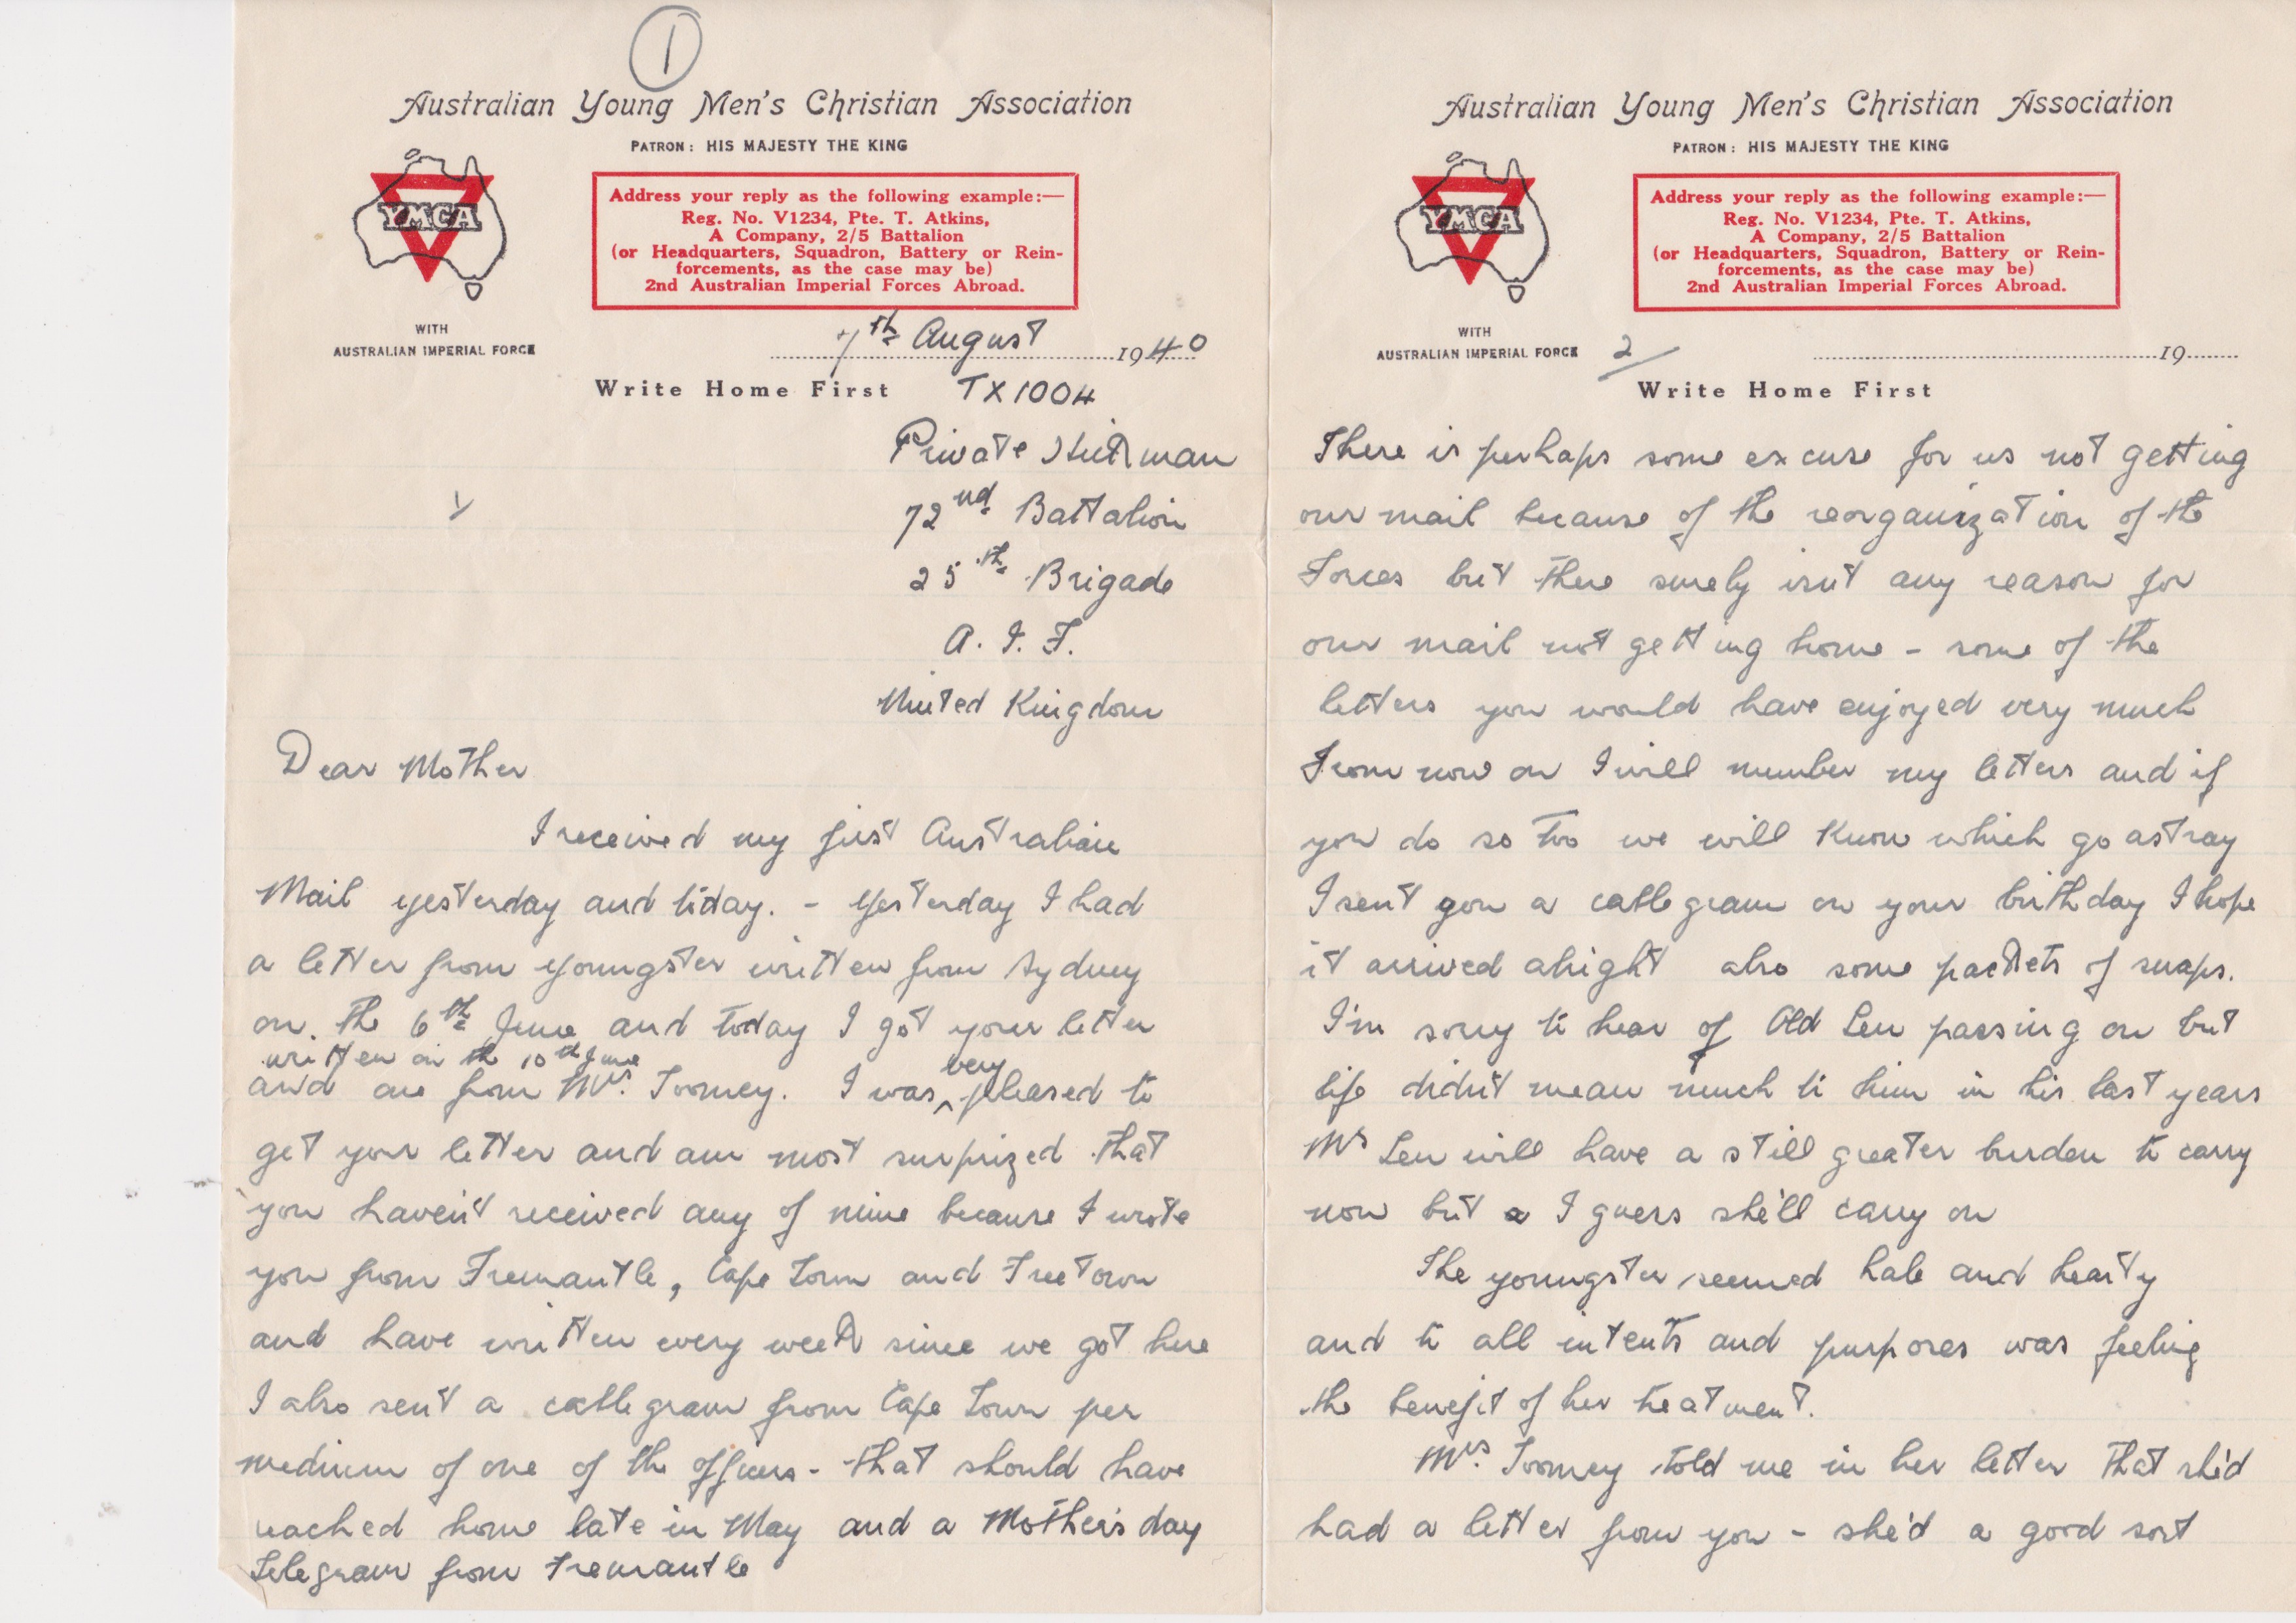 1
Australian Young Men's Christian Association
PATRON: HIS MAJESTY THE KING
YMCA
WITH
AUSTRALIAN IMPERIAL FORCE
Address your reply as the following example:—
Reg. No. V1234, Pte. T. Atkins,
A Company, 2/5 Battalion
(or Headquarters, Squadron, Battery or Rein-
forcements, as the case may be)
2nd Australian Imperial Forces Abroad.
7th August 1940
Write Home First TX1004
Private
72nd Battalion
25th Brigade
A. I. F.
United Kingdom
Dear Mother
I received my first Australian
Mail yesterday and today. - Yesterday I had
a letter from Youngster written from Sydney
on the 6th June and today I got your letter
written on the 10th June
and one from Mrs. Toomey. I was very pleased to
get your letter and am most surprized that
you haven't received any of mine because I wrote
you from Fremantle, Cape Town and Freetown
and have written every week since we got here
I also sent a cablegram from Cape Town per
medium of one of the officers - that should have
reached home late in May and a Mother's day
Telegram from Fremantle
Australian Young Men's Christian Association
PATRON: HIS MAJESTY THE KING
YMCA
WITH
AUSTRALIAN IMPERIAL FORCE
Address your reply as the following example:—
Reg. No. V1234, Pte. T. Atkins,
A Company, 2/5 Battalion
(or Headquarters, Squadron, Battery or Rein-
forcements, as the case may be)
2nd Australian Imperial Forces Abroad.
2/ 19
Write Home First
There is perhaps some excuse for us not getting
our mail because of the reorganization of the
Forces but there surely isn't any reason for
our mail not getting home - some of the
letters you would have enjoyed very much
From now on I will number my letters and if
you do so too we will know which go astray
I sent you a cablegram on your birthday I hope
it arrived alright also some packets of snaps.
I'm sorry to hear of Old Len passing on but
life didn't mean much to him in his last years
Mrs Len will have a still greater burden to carry
now but a I guess she'll carry on
The youngster seemed hale and hearty
and to all intents and purposes was feeling
the benefit of her treatment.
Mrs. Toomey told me in her letter that she'd
had a letter from you - she'd a good sort